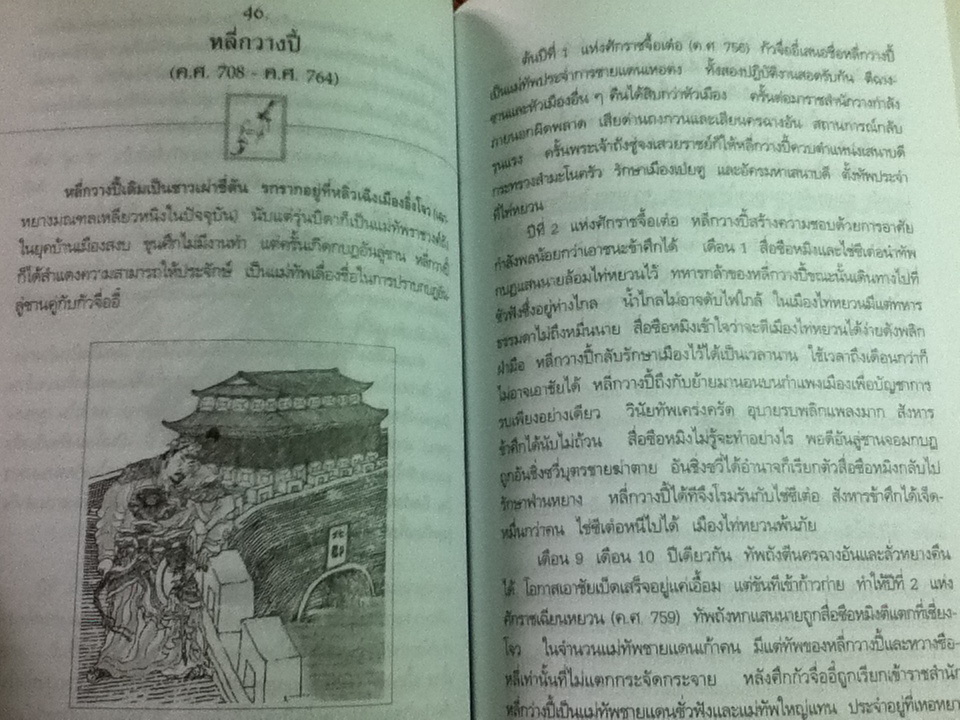 46.
หลี่กวางปี้
(ค.ศ. 708 - ค.ศ. 764)
หลี่กวางปี้เดิมเป็นชาวเผ่าชี่ตัน รกรากอยู่ที่หลิวเฉิงเมืองอิ๋งโจว
หยางมณฑลเหลียวหนิงในปัจจุบัน) นับแต่รุ่นบิดาก็เป็นแม่ทัพราชวงศ์ถัง
ในยุคบ้านเมืองสงบ ขุนศึกไม่มีงานทำ แต่ครั้นเกิดกบฏอันลู่ซาน หลี่กวางปี้
ก็ได้สำแดงความสามารถให้ประจักษ์ เป็นแม่ทัพเลื่องชื่อในการปราบกบฏอัน
ลู่ซานคู่กับกัวจื่ออี๋
北
ต้นปีที่ 1 แห่งศักราชจื้อเต๋อ (ค.ศ. 756) กัวจื่ออี๋เสนอชื่อหลี่กวางปี้
เป็นแม่ทัพประจำการชายแดนเหอตง ทั้งสองปฏิบัติงานสอดรับกัน ตีฉาง-
ซานและหัวเมืองอื่น ๆ คืนได้สิบกว่าหัวเมือง ครั้นต่อมาราชสำนักวางกำลัง
ภายนอกผิดพลาด เสียด่านถงกวนและเสียนครฉางอัน สถานการณ์กลับ
รุนแรง ครั้นพระเจ้าถังซู่จงเสวยราชย์ก็ให้หลี่กวางปี้ควบตำแหน่งเสนาบดี
กระทรวงสำมะโนครัว รักษาเมืองเป่ยตู และอัครมหาเสนาบดี ตั้งทัพประจำ
ที่ไท่หยวน
ปีที่ 2 แห่งศักราชจื้อเต๋อ หลี่กวางปี้สร้างความชอบด้วยการอาศัย
กำลังพลน้อยกว่าเอาชนะข้าศึกได้ เดือน 1 สื่อซือหมิงและไช่ซีเต๋อนำทัพ
กบฏแสนนายล้อมไท่หยวนไว้ ทหารกล้าของหลี่กวางปี้ขณะนั้นเดินทางไปที่
ซั่วฟังซึ่งอยู่ห่างไกล น้ำไกลไม่อาจดับไฟใกล้ ในเมืองไท่หยวนมีแต่ทหาร
ธรรมดาไม่ถึงหมื่นนาย สื่อซือหมิงเข้าใจว่าจะตีเมืองไท่หยวนได้ง่ายดังพลิก
ฝ่ามือ หลี่กวางปี้กลับรักษาเมืองไว้ได้เป็นเวลานาน ใช้เวลาถึงเดือนกว่าก็
ไม่อาจเอาชัยได้ หลี่กวางปี้ถึงกับย้ายมานอนบนกำแพงเมืองเพื่อบัญชาการ
รบเพียงอย่างเดียว วินัยทัพเคร่งครัด อุบายรบพลิกแพลงมาก สังหาร
ข้าศึกได้นับไม่ถ้วน สื่อซือหมิงไม่รู้จะทำอย่างไร พอดีอันลู่ซานจอมกบฏ
ถูกอันชิ่งชวี่บุตรชายฆ่าตาย อันชิ่งชวี่ได้อำนาจก็เรียกตัวสื่อซือหมิงกลับไป
รักษาฟานหยาง หลี่กวางปี้ได้ทีจึงโรมรันกับไช่ซีเต๋อ สังหารข้าศึกได้เจ็ด-
หมื่นกว่าคน ไช่ซีเต๋อหนีไปได้ เมืองไท่หยวนพ้นภัย
เดือน 9 เดือน 10 ปีเดียวกัน ทัพถังตีนครฉางอันและลั่วหยางคืน
ได้ โอกาสเอาชัยเบ็ดเสร็จอยู่แค่เอื้อม แต่ขันทีเข้าก้าวก่าย ทำให้ปีที่ 2 แห่ง
ศักราชเฉียนหยวน (ค.ศ. 759) ทัพถังหกแสนนายถูกสื่อซือหมิงตีแตกที่เซี่ยง-
โจว ในจำนวนแม่ทัพชายแดนเก้าคน มีแต่ทัพของหลี่กวางปี้และหวางซือ-
หลี่เท่านั้นที่ไม่แตกกระจัดกระจาย หลังศึกกัวจื่ออี๋ถูกเรียกเข้าราชสำนัก
หลี่กวางปี้เป็นแม่ทัพชายแดนซั่วฟังและแม่ทัพใหญ่แทน ประจำอยู่ที่